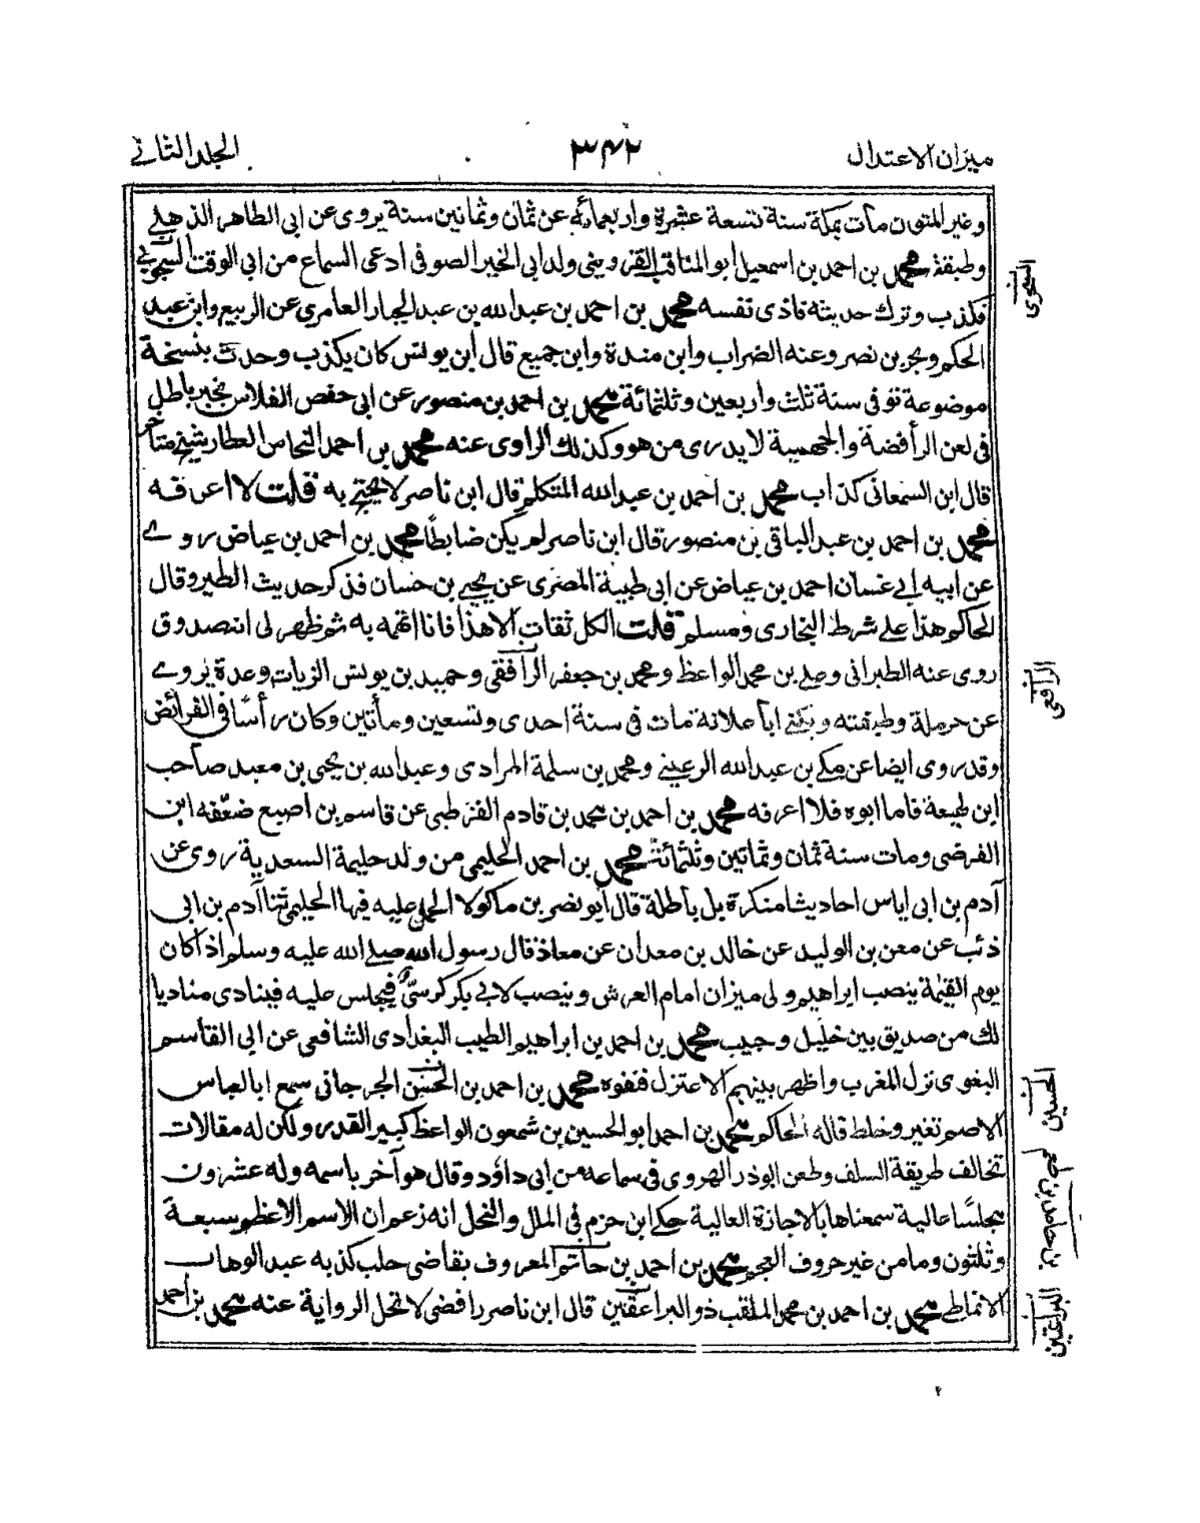 ميزان الاعتدال ٣٤٢ الجلد الثاني
وغير المتون مات بمكة سنة تسعة عشرة واربعمائة عن ثمان وثمانين سنة يروى عن ابى الطاهر الذهلے
وطبقة محمد بن احمد بن اسمعيل ابو المناقب القزوينى ولد ابى الخير الصوفى ادعى السماع من ابى الوقت
فكذب وترك حديثه فاذى نفسه محمد بن احمد بن عبد الله بن عبد الجبار العامرى عن الربيع وابن عبد
الحكم وبحر بن نصر وعنه الضراب وابن مندة وابن جميع قال ابن يونس كان يكذب وحدث بنسخة
موضوعة توفى سنة ثلث واربعين وثلثمائة محمد بن احمد بن منصور عن ابى حفص الفلاس بخبر باطل
فى لعن الرافضة والجهمية لا يدرى من هو وكذلك الراوى عنه محمد بن احمد النحاس العطار شيخ متأخر
قال ابن السمعانى كذاب محمد بن احمد بن عبد الله المتكلم قال ابن ناصر لا يحتج به قلت لا اعرفه
محمد بن احمد بن عبد الباقى بن منصور قال ابن ناصر لم يكن ضابطًا محمد بن احمد بن عياض روے
عن ابيه ابے غسان احمد بن عياض عن ابى طيبة المصرى عن يحيے بن حسان فذكر حديث الطير وقال
الحاكم هذا علے شرط البخارى ومسلم قلت الكل ثقات الا هذا فانا اتهمه به ثم ظهر لى انه صدوق
روى عنه الطبرانى وعلے بن محمد الواعظ ومحمد بن جعفر الرافقى وحميد بن يونس الزيات وعدة يروے
عن حرملة وطبقته ويكنے ابا علاثة مات فى سنة احدى وتسعين ومأتين وكان رأسًا فى الفرائض
وقد روى ايضا عن مكے بن عبد الله الرعينے ومحمد بن سلمة المرادى وعبد الله بن يحيى بن معبد صاحب
ابن لهيعة فاما ابوه فلا اعرفه محمد بن احمد بن محمد بن قادم القرطبى عن قاسم بن اصبغ ضعّفه ابن
الفرضى ومات سنة ثمان وثمانين وثلثمائة محمد بن احمد الحليمى من ولد حليمة السعدية روى عن
آدم بن ابى اياس احاديث منكرة بل باطلة قال ابو نصر بن ماكولا الحمل عليه فيها الحليمى ثنا آدم بن ابى
ذئب عن معن بن الوليد عن خالد بن معدان عن معاذ قال رسول الله صلے الله عليه وسلم اذا كان
يوم القيمة ينصب ابراهيم ولى ميزان امام العرش وينصب لابے بكر كرسىٌ فيجلس عليه فينادى مناديا
لك من صديق بين خليل وحبيب محمد بن احمد بن ابراهيم الطيب البغدادى الشافعى عن ابى القاسم
البغوى نزل المغرب واظهر بينهم الاعتزل فنفوه محمد بن احمد بن الحسن الجرجانى سمع ابا العباس
الاصم تغير وخلط قاله الحاكم محمد بن احمد ابو الحسين بن شمعون الواعظ كبير القدر ولكن له مقالات
تخالف طريقة السلف وطعن ابو ذر الهروى فى سماعه من ابى داؤد وقال هو آخر باسمه وله عشرون
مجلسًا عالية سمعناها بالاجازة العالية حكے ابن حزم فى الملل والنحل انه زعم ان الاسم الاعظم سبعة
وثلثون وما من غير حروف العجم محمد بن احمد بن حاتم المعروف بقاضى حلب كذبه عبد الوهاب
الانماطے محمد بن احمد بن محمد الملقب ذو البراعقين قال ابن ناصر رافضى لا تحل الرواية عنه محمد بن احمد
السجزى
الرافعى
الحسين
البراعتين